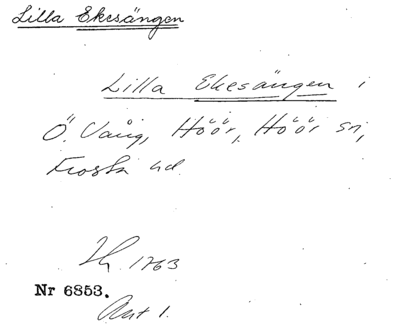 Lilla Ekesängen
Lilla Ekesängen i
Ö. Vång, Höör, Höör sn,
Frosta hd.
1763
Nr 6853.
Akt 1.